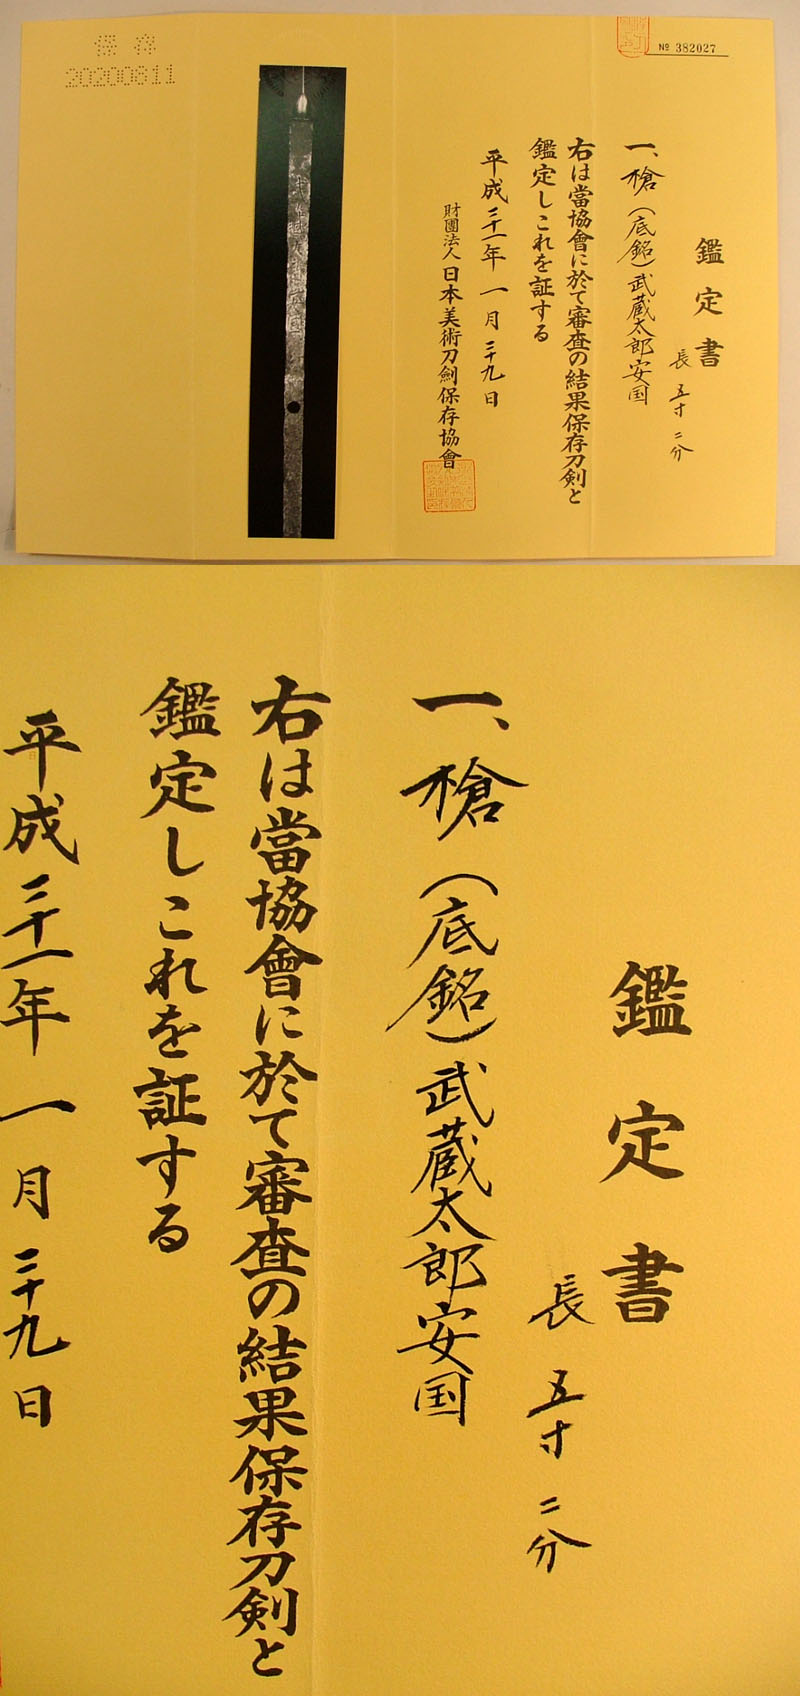 保存
20200611
№ 382027
鑑定書
長 五寸 二分
一、槍(底銘)武蔵太郎安国
右は當協會に於て審査の結果保存刀剣と
鑑定しこれを証する
平成三十一年 一月 二十九日
財團法人 日本美術刀劍保存協會
鑑定書
長 五寸 二分
一、槍(底銘)武蔵太郎安国
右は當協會に於て審査の結果保存刀剣と
鑑定しこれを証する
平成三十一年 一月 二十九日